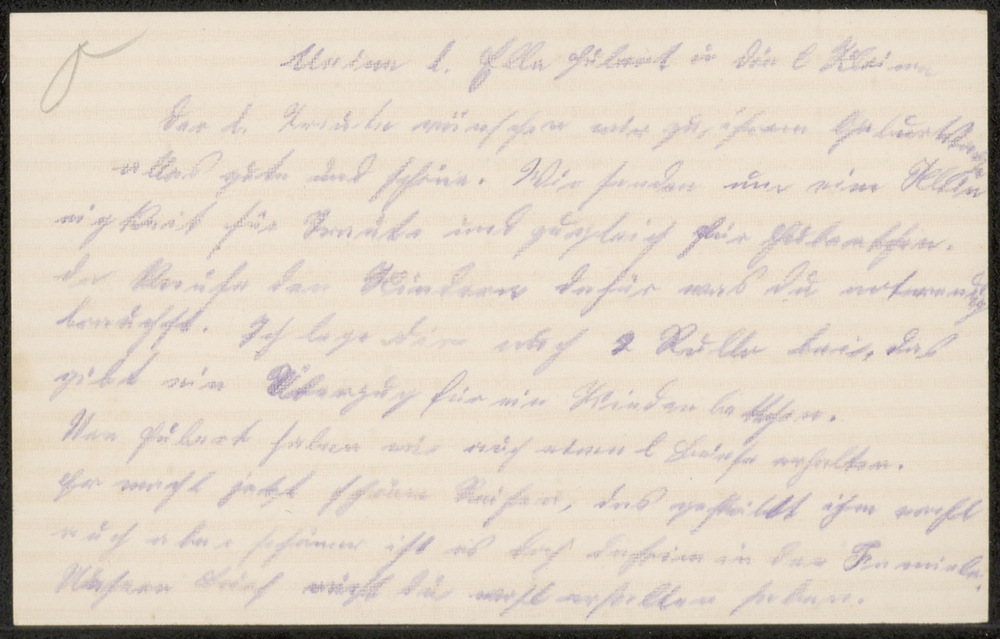 Meine l. Ella Hubert u die l Kleinen
Der l. Traute wünschen wir zu ihrem Geburtstag
alles gute und schöne. Wir senden nur eine Klein
nigkeit für Traute und zugleich für Hubertchen.
du kaufst den Kindern dafür was du notwendig
brauchst. Ich lege dir noch 2 bei, das
gibt ein Überzug für ein Kinderbettchen.
Von Hubert haben wir auch einen l Brief erhalten.
Er macht jetzt schöne Reisen, das gefällt ihm wohl
auch aber schöner ist es doch daheim in der Familie.
Unsern Brief wirst du wohl erhalten haben.